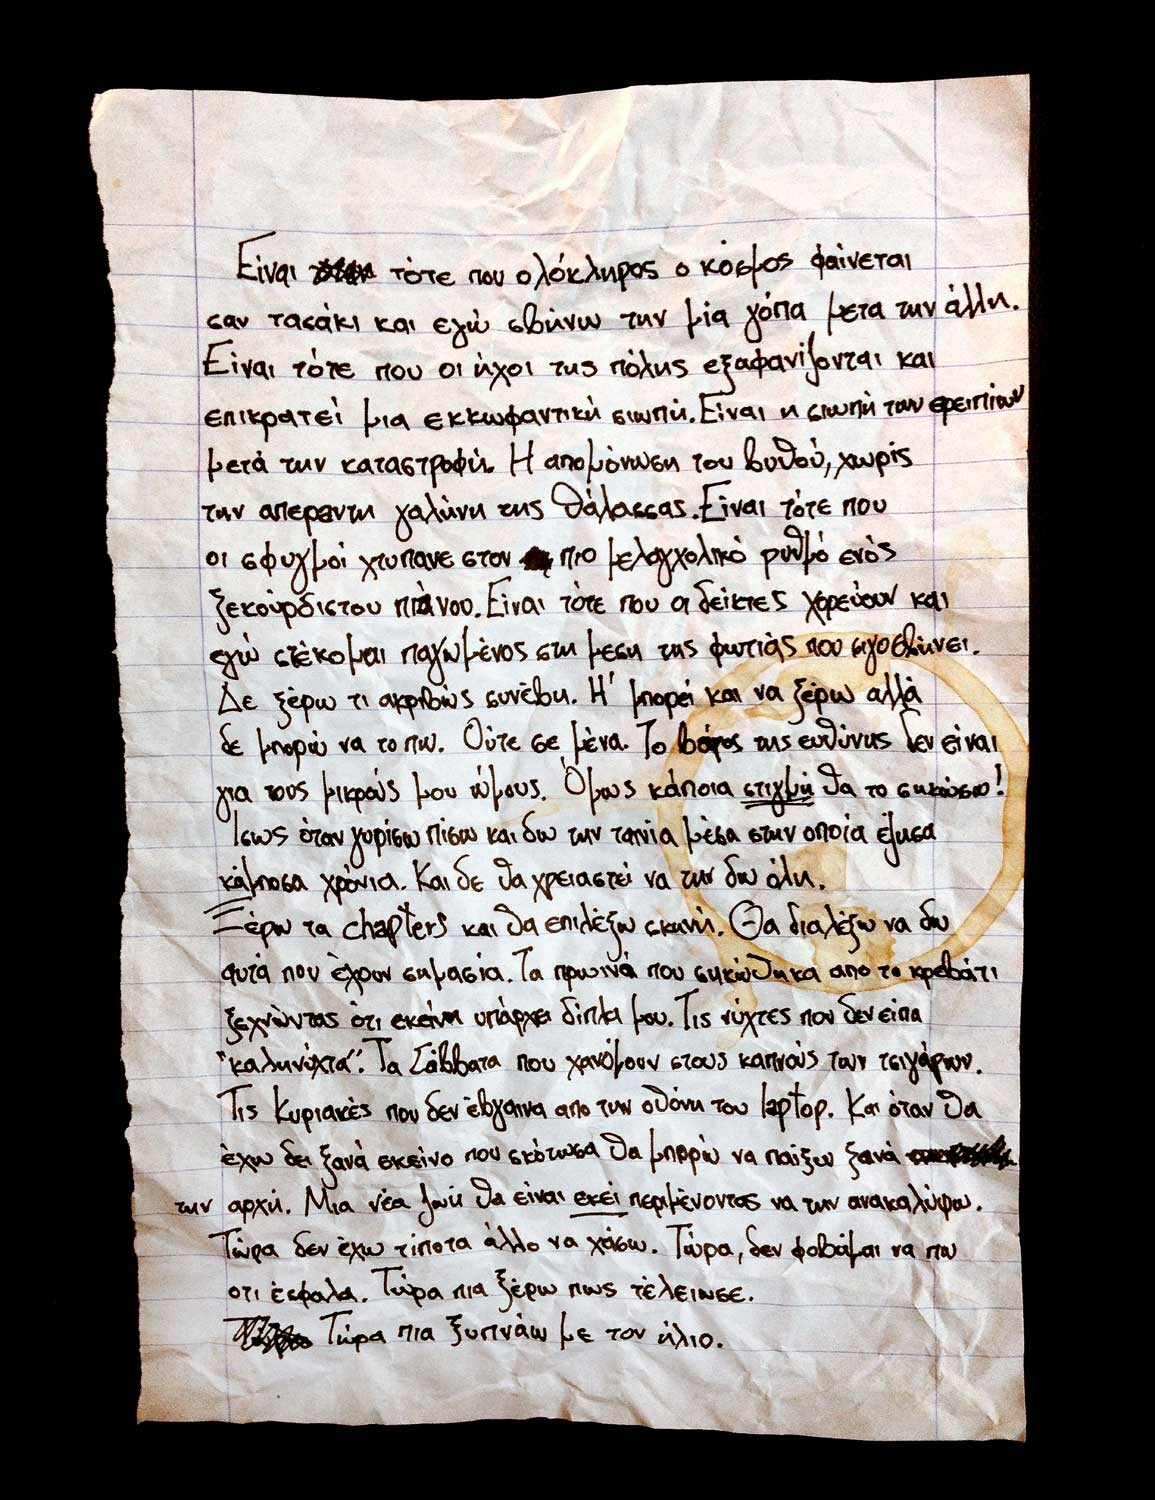 Είναι τότε που ολόκληρος ο κόσμος φαίνεται
σαν τασάκι και εγώ σβήνω την μία γόπα μετα την άλλη.
Είναι τότε που οι ήχοι της πόλης εξαφανίζονται και
επικρατεί μια εκκωφαντική σιωπή. Είναι η σιωπή των ερειπίων
μετά την καταστροφή. Η απομόνωση του βυθού, χωρίς
την απεραντη γαλήνη της θάλασσας. Είναι τότε που
οι σφυγμοί χτυπανε στον πιο μελαγχολικό ρυθμό ενός
ξεκούρδιστου πιάνου. Είναι τότε που οι δείκτες χορεύουν και
εγώ στέκομαι παγωμένος στη μεση της φωτιάς που σιγοσβήνει.
Δε ξέρω τι ακριβώς συνέβη. Ή μπορεί και να ξέρω αλλά
δε μπορώ να το πω. Ούτε σε μένα. Το βάρος της ευθύνης δεν είναι
για τους μικρούς μου ώμους. Όμως κάποια στιγμή θα το σηκώσω!
Ίσως όταν γυρίσω πίσω και δω την ταινία μέσα στην οποία έζησα
κάμποσα χρόνια. Και δε θα χρειαστεί να την δω όλη.
Ξέρω τα chapters και θα επιλέξω σκηνή. Θα διαλέξω να δω
αυτά που έχουν σημασία. Τα πρωινά που σηκώθηκα απο το κρεβάτι
ξεχνώντας ότι εκείνη υπάρχει δίπλα μου. Τις νύχτες που δεν είπα
"καληνύχτα". Τα Σάββατα που χανόμουν στους καπνούς των τσιγάρων.
Τις Κυριακές που δεν έβγαινα απο την οθόνη του laptop. Και όταν θα
έχω δει ξανά εκείνο που σκότωσα θα μπορώ να παίξω ξανά
την αρχή. Μια νέα ζωή θα είναι εκεί περιμένοντας να την ανακαλύψω.
Τώρα δεν έχω τίποτα άλλο να χάσω. Τώρα, δεν φοβάμαι να πω
οτι έσφαλα. Τώρα πια ξέρω πως τέλειωσε.
Τώρα πια ξυπνάω με τον ήλιο.